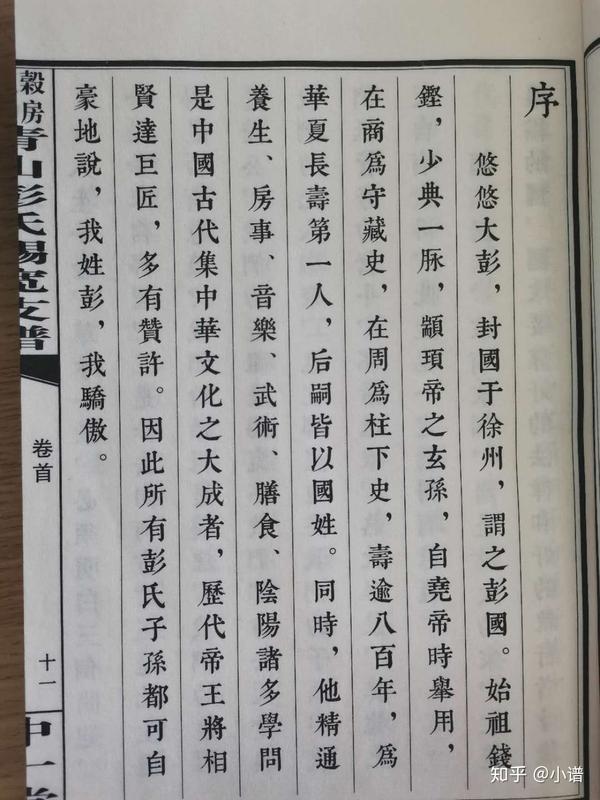 序
悠悠大彭，封國于徐州，謂之彭國。始祖錢
鏗，少典一脉，顓頊帝之玄孫，自堯帝時舉用，
在商爲守藏史，在周爲柱下史，壽逾八百年，爲
華夏長壽第一人，后嗣皆以國姓。同時，他精通
養生、房事、音樂、武術、膳食、陰陽諸多學問
是中國古代集中華文化之大成者，歷代帝王將相
賢達巨匠，多有贊許。因此所有彭氏子孫都可自
豪地說，我姓彭，我驕傲。
穀房青山彭氏錫寬支譜
卷首
十一
中一堂
知乎 @小谱